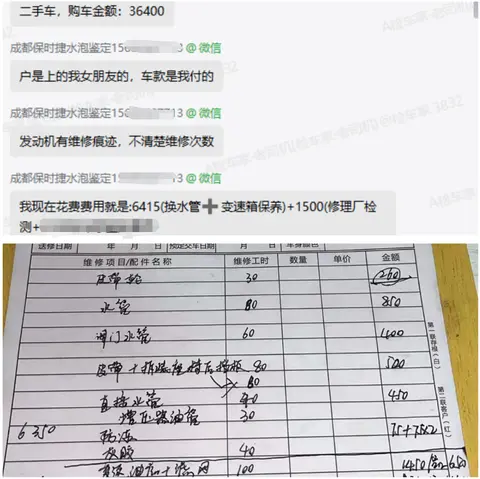 二手车，购车金额：36400
成都保时捷水泡鉴定15 @微信
户是上的我女朋友的，车款是我付的
成都保时捷水泡鉴定15 @微信
发动机有维修痕迹，不清楚维修次数
成都保时捷水泡鉴定 @微信
我现在花费费用就是:6415(换水管➕变速箱保养)+1500(修理厂检
测+
送修日期 年 月 日 预定交车日期 年 月 日 车身颜色
维修项目/配件名称 维修工时 数量 单价 金额
皮带轮 30 260
水管 80 850
阀门水管 60 1400
皮带+拆装 80 500
80
直接水管 40 450
增压器油管 30
6350 防冻 75+75x2
灰胶 40
100 1450
第一联存根(白)
第二联客户(红)